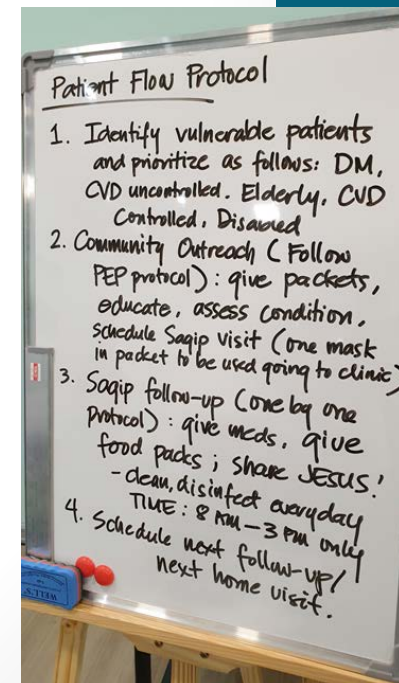 Patient Flow Protocol
1. Identify vulnerable patients
and prioritize as follows: DM,
CVD uncontrolled. Elderly, CVD
Controlled, Disabled
2. Community Outreach (Follow
PEP protocol): give packets,
educate, assess condition,
schedule Sagip visit (one mask
in packet to be used going to clinic)
3. Sagip follow-up (one by one
protocol): give meds, give
food packs; share JESUS!
- clean, disinfect everyday
TIME: 8 AM - 3 PM only
4. Schedule next follow-up/
next home visit.